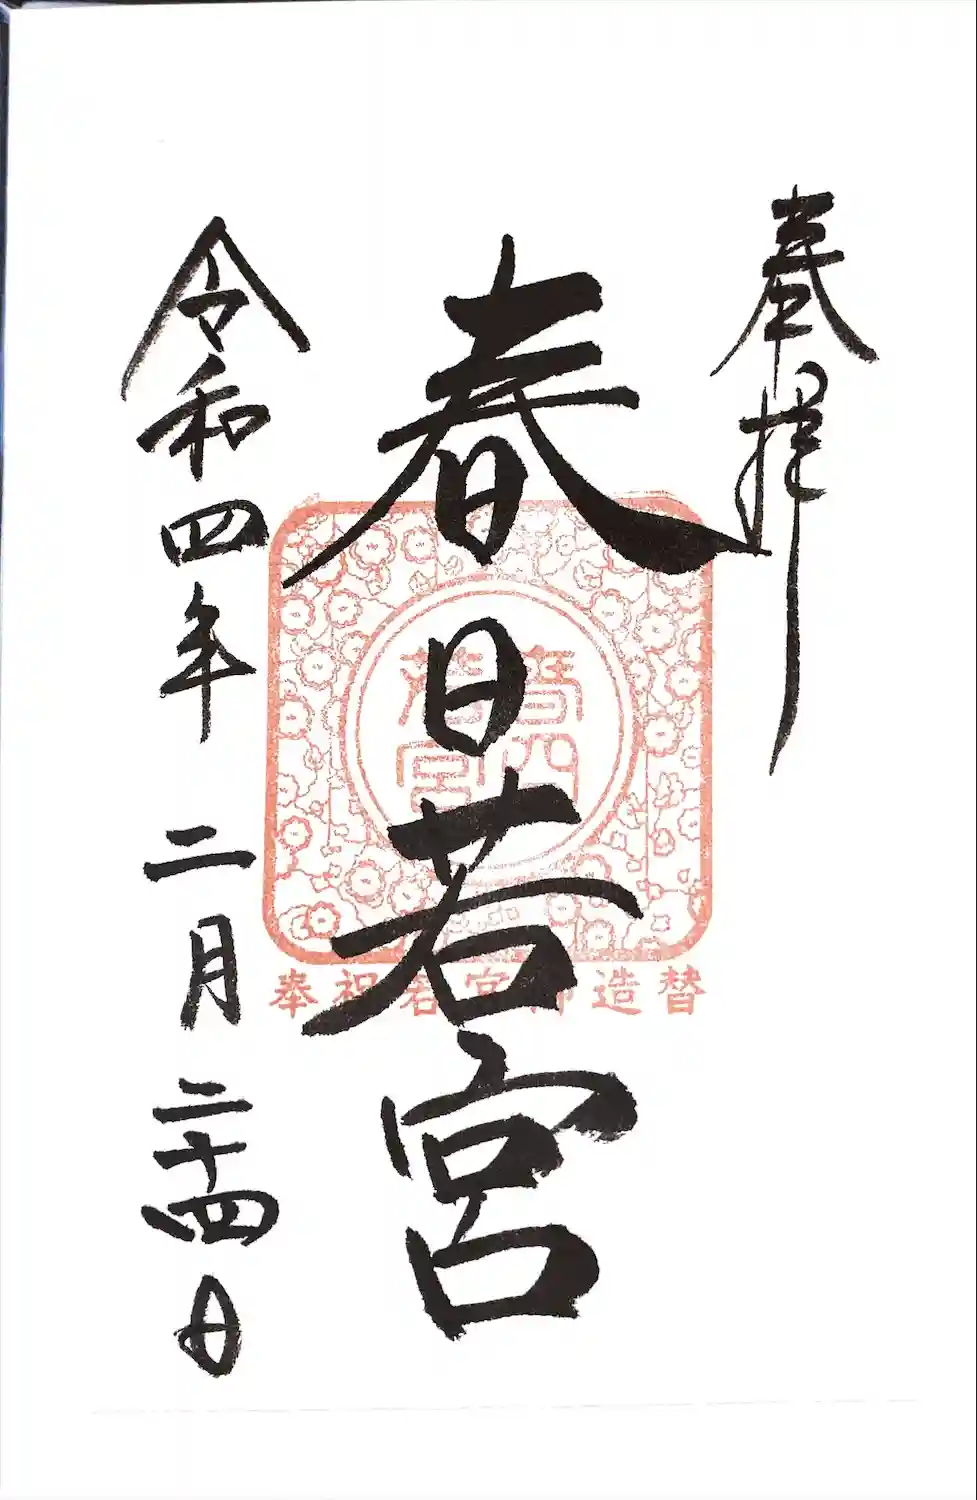 奉拝
春日若宮
奉祝若宮御造替
令和四年二月二十四日